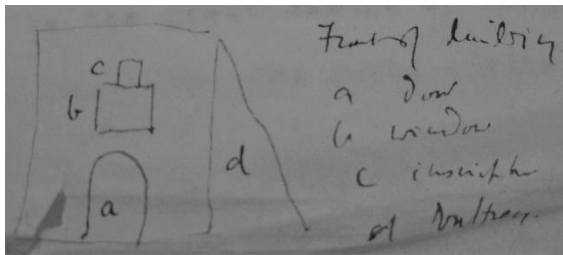 c
b
a
d
Front of building
a door
b window
c inscription
d Buttress.